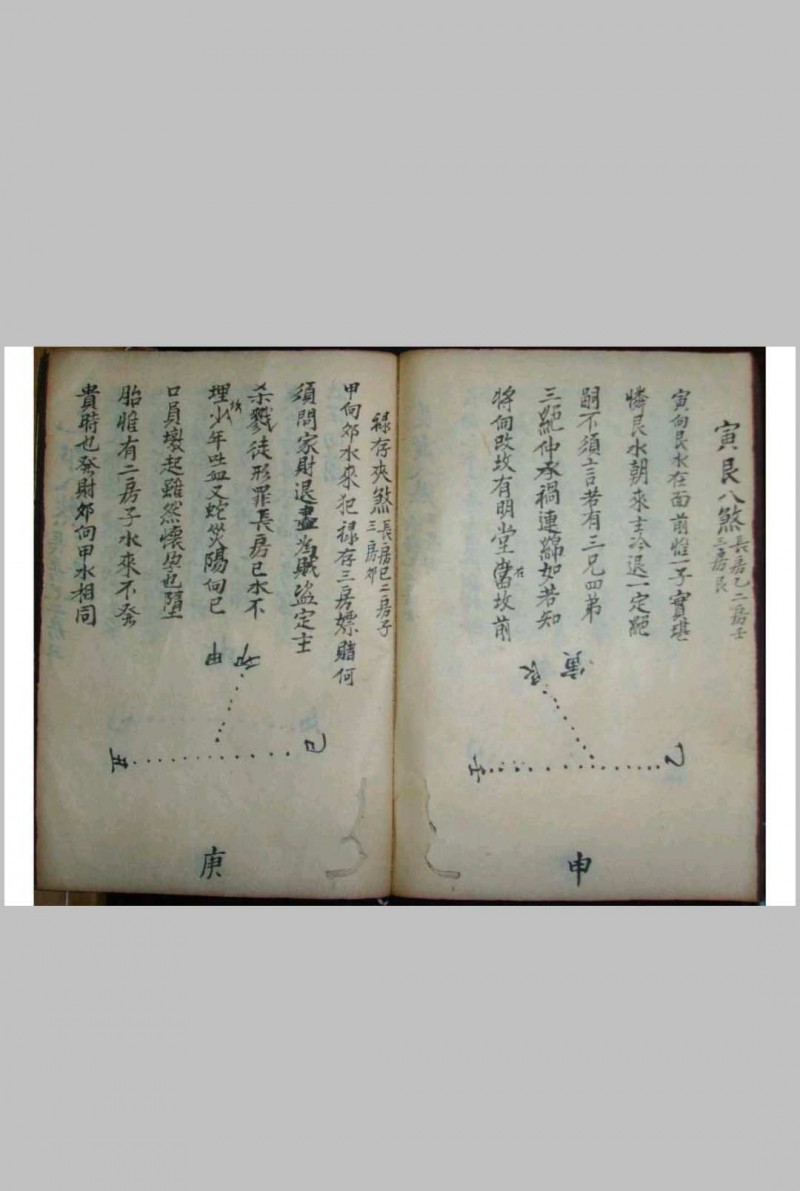 寅艮八煞 長房乙二房壬
三房艮
寅向艮水在面前惟一子實堪
憐艮水朝來主冷退一定絕
嗣不須言若有三兄四弟
三絕仲承禍連綿如若知
將向改坟有明堂當在坟前
艮 寅
壬 乙
申
祿存夾煞 長房巳二房子
三房卯
甲向卯水來犯祿存三房嫖賭何
須問家財退盡為賊盜定主
杀戮徒形罪長房巳水不
埋少年吐血又蛇災陽向巳
口員墩起雖然懷孕也墮
胎惟有二房子水來不發
貴時也發財卯向甲水相同
卯 甲
丑 巳
庚